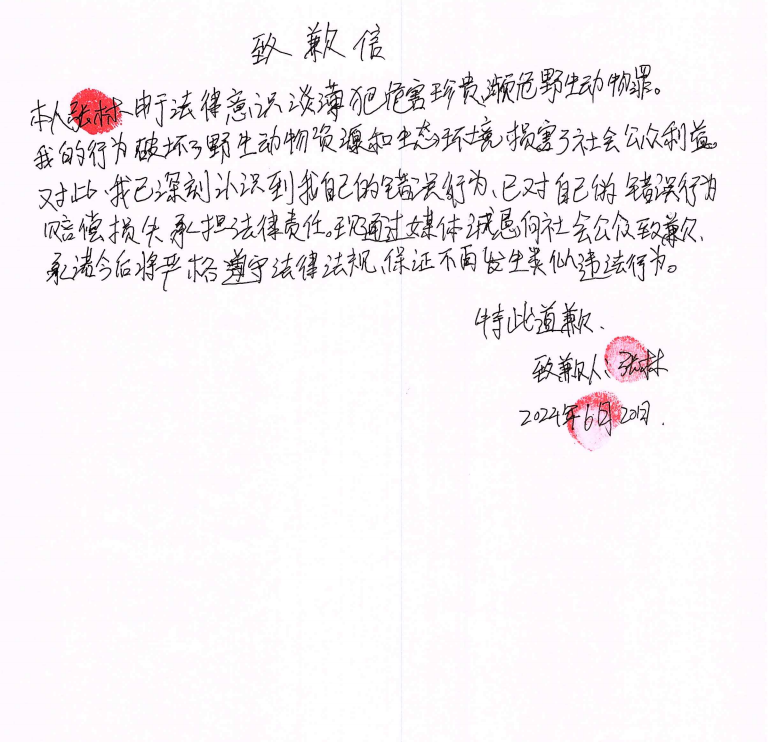 致歉信
本人张林由于法律意识淡薄犯危害珍贵、濒危野生动物罪。
我的行为破坏了野生动物资源和生态环境,损害了社会公众利益。
对此、我已深刻认识到我自己的错误行为、已对自己的错误行为
赔偿损失承担法律责任。现通过媒体诚恳向社会公众致歉、
承诺今后将严格遵守法律法规、保证不再发生类似违法行为。
特此道歉、
致歉人、张林
2024年6月20日.